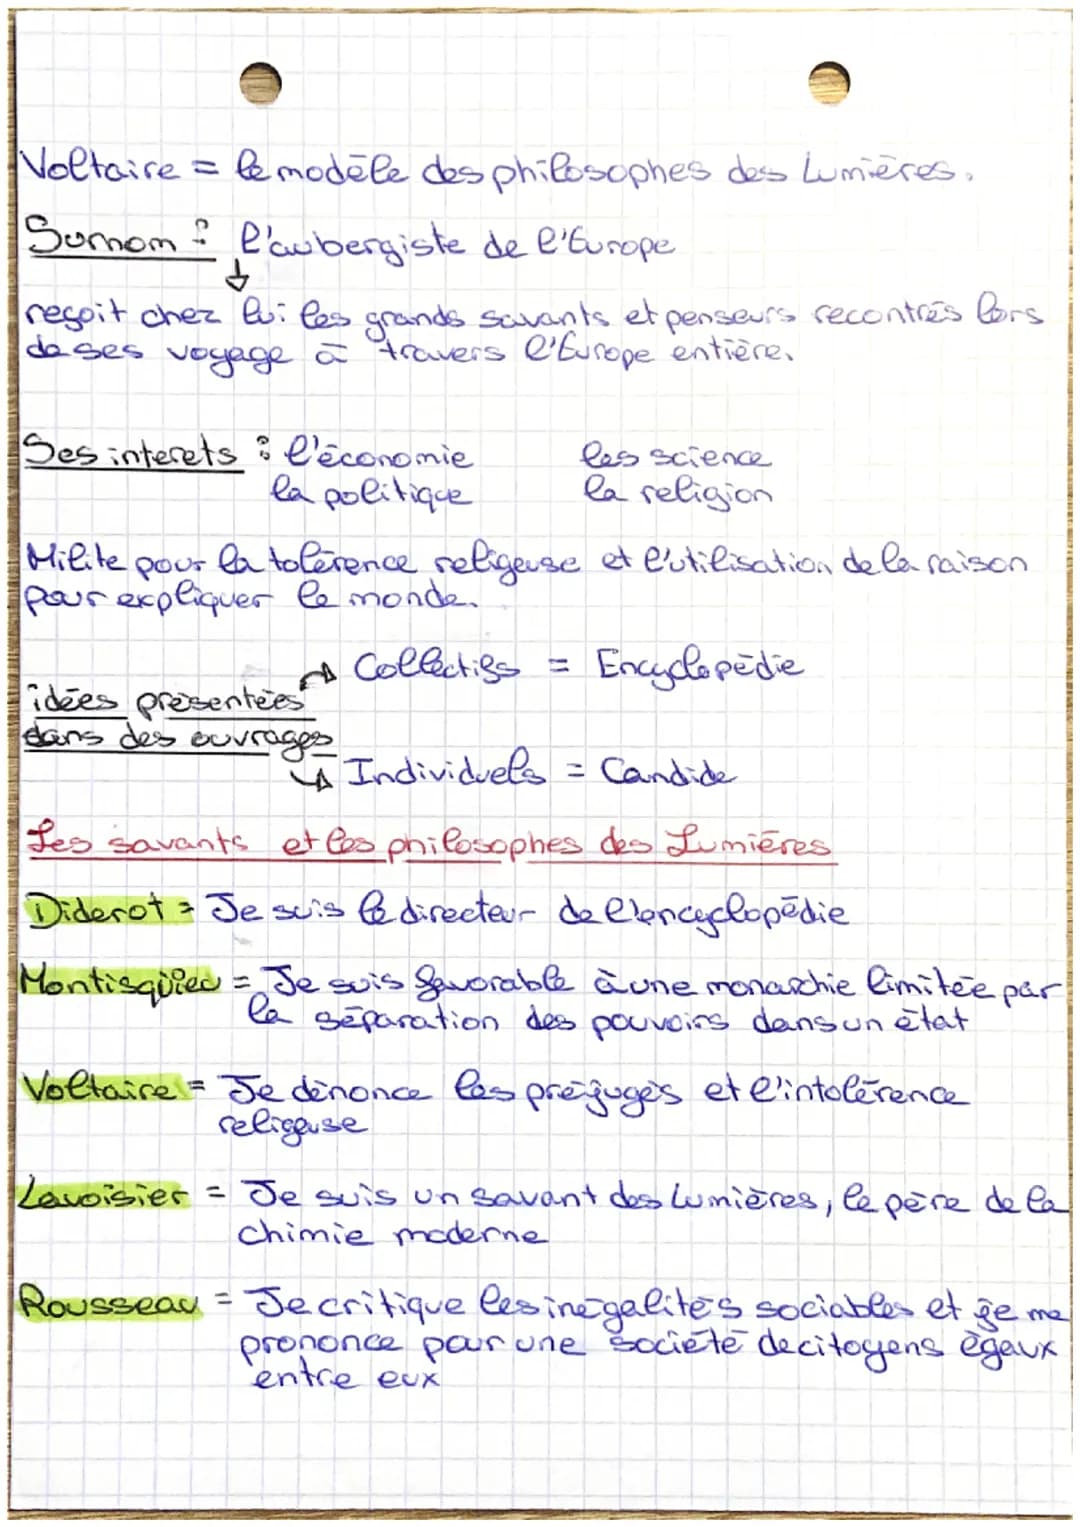 Voltaire = le modèle des philosophes des Lumières.
Surnom : l'aubergiste de l'Europe
↓
reçoit chez lui les grands savants et penseurs recontrés lors
de ses voyage à travers l'Europe entière.
Ses interets : l'économie les science
la politique la religion
Milite pour la tolérence religeuse et l'utilisation de la raison
pour expliquer le monde.
→ Collectifs = Encyclopédie
idées présentées
dans des ouvrages
→ Individuels = Candide
Les savants et les philosophes des Lumières
Diderot = Je suis le directeur de l'encyclopédie
Montisquieu = Je suis favorable à une monarchie limitée par
la séparation des pouvoirs dans un état
Voltaire = Je dénonce les préjugés et l'intolérence
religeuse
Lavoisier = Je suis un savant des lumières, le père de la
chimie moderne
Rousseau = Je critique les inégalités sociables et je me
prononce pour une société de citoyens égaux
entre eux